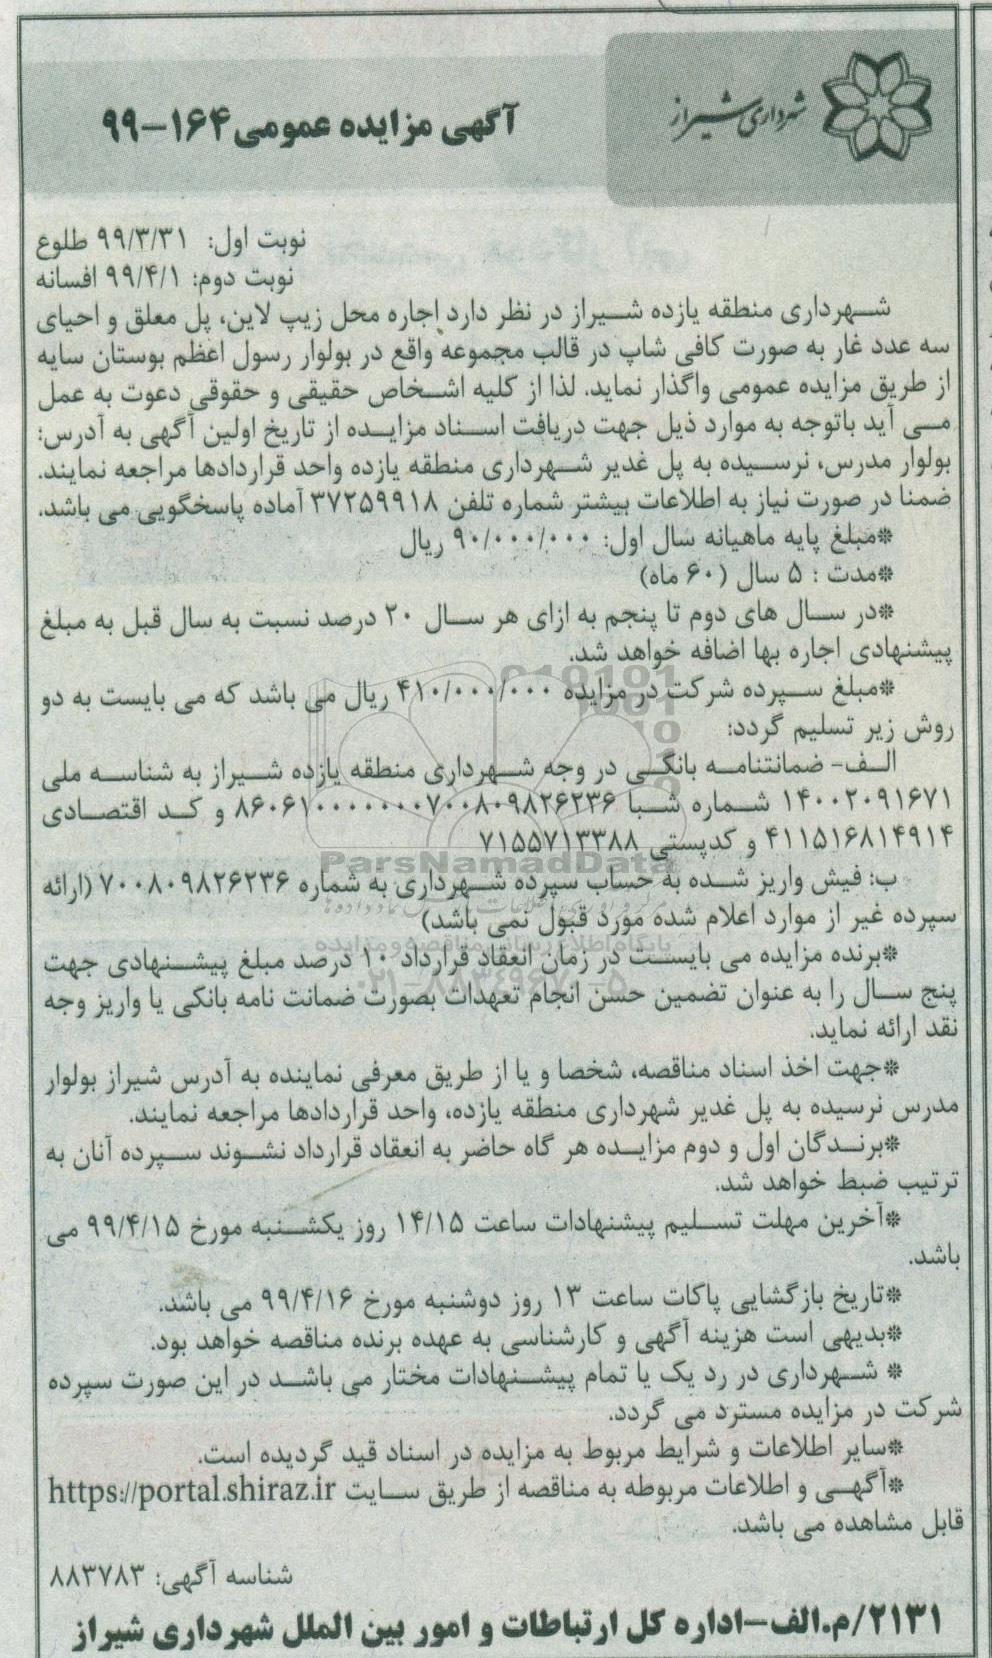 شهرداری شیراز
آگهی مزایده عمومی ۱۶۴-۹۹
نوبت اول: ۹۹/۳/۳۱ طلوع
نوبت دوم: ۹۹/۴/۱ افسانه
شهرداری منطقه یازده شیراز در نظر دارد اجاره محل زیپ لاین، پل معلق و احیای
سه عدد غار به صورت کافی شاپ در قالب مجموعه واقع در بولوار رسول اعظم بوستان سایه
از طریق مزایده عمومی واگذار نماید. لذا از کلیه اشخاص حقیقی و حقوقی دعوت به عمل
می آید باتوجه به موارد ذیل جهت دریافت اسناد مزایده از تاریخ اولین آگهی به آدرس:
بولوار مدرس، نرسیده به پل غدیر شهرداری منطقه یازده واحد قراردادها مراجعه نمایند.
ضمنا در صورت نیاز به اطلاعات بیشتر شماره تلفن ۳۷۲۵۹۹۱۸ آماده پاسخگویی می باشد.
*مبلغ پایه ماهیانه سال اول: ۹۰/۰۰۰/۰۰۰ ریال
*مدت : ۵ سال (۶۰ ماه)
*در سال های دوم تا پنجم به ازای هر سال ۲۰ درصد نسبت به سال قبل به مبلغ
پیشنهادی اجاره بها اضافه خواهد شد.
*مبلغ سپرده شرکت در مزایده ۴۱۰/۰۰۰/۰۰۰ ریال می باشد که می بایست به دو
روش زیر تسلیم گردد:
الف- ضمانتنامه بانکی در وجه شهرداری منطقه یازده شیراز به شناسه ملی
۱۴۰۰۲۰۹۱۶۷۱ شماره شبا ۸۶۰۶۱۰۰۰۰۰۰۰۷۰۰۸۰۹۸۲۶۲۳۶ و کد اقتصادی
۴۱۱۵۱۶۸۱۴۹۱۴ و کدپستی ۷۱۵۵۷۱۳۳۸۸
ParsNamadData
ب: فیش واریز شده به حساب سپرده شهرداری به شماره ۷۰۰۸۰۹۸۲۶۲۳۶ (ارائه
سپرده غیر از موارد اعلام شده مورد قبول نمی باشد)
پایگاه اطلاع رسانی مناقصه و مزایده
*برنده مزایده می بایست در زمان انعقاد قرارداد ۱۰ درصد مبلغ پیشنهادی جهت
پنج سال را به عنوان تضمین حسن انجام تعهدات بصورت ضمانت نامه بانکی یا واریز وجه
نقد ارائه نماید.
*جهت اخذ اسناد مناقصه، شخصا و یا از طریق معرفی نماینده به آدرس شیراز بولوار
مدرس نرسیده به پل غدیر شهرداری منطقه یازده، واحد قراردادها مراجعه نمایند.
*برندگان اول و دوم مزایده هر گاه حاضر به انعقاد قرارداد نشوند سپرده آنان به
ترتیب ضبط خواهد شد.
*آخرین مهلت تسلیم پیشنهادات ساعت ۱۴/۱۵ روز یکشنبه مورخ ۹۹/۴/۱۵ می
باشد.
*تاریخ بازگشایی پاکات ساعت ۱۳ روز دوشنبه مورخ ۹۹/۴/۱۶ می باشد.
*بدیهی است هزینه آگهی و کارشناسی به عهده برنده مناقصه خواهد بود.
* شهرداری در رد یک یا تمام پیشنهادات مختار می باشد در این صورت سپرده
شرکت در مزایده مسترد می گردد.
*سایر اطلاعات و شرایط مربوط به مزایده در اسناد قید گردیده است.
*آگهی و اطلاعات مربوطه به مناقصه از طریق سایت https://portal.shiraz.ir
قابل مشاهده می باشد.
شناسه آگهی: ۸۸۳۷۸۳
۲۱۳۱/م.الف-اداره کل ارتباطات و امور بین الملل شهرداری شیراز